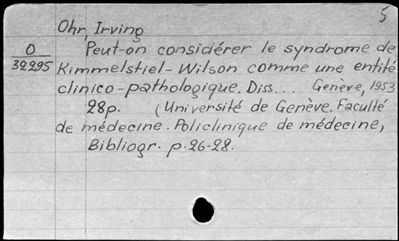 5
Ohr, Irving
O
39295
Peut-on considérer le syndrome de
Kimmelstiel-Wilson comme une entité
clinico-pathologique. Diss... Genève, 1953
28p. (Université de Genève. Faculté
de médecine. Policlinique de médecine,
Bibliogr. p. 26-28.